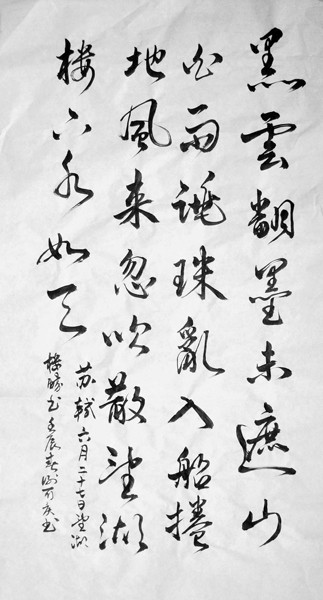 黑雲翻墨未遮山
白雨跳珠亂入船捲
地風来忽吹散望湖
樓下水如天
苏轼六月二十七日望湖
樓醉书壬辰春